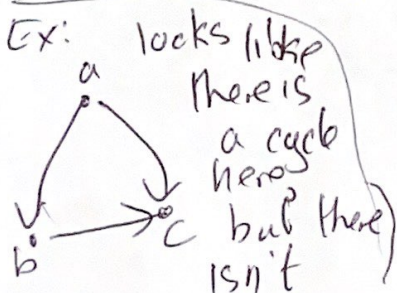 Ex: looks like
there is
a cycle
here,
but there
isn't
a
b
c